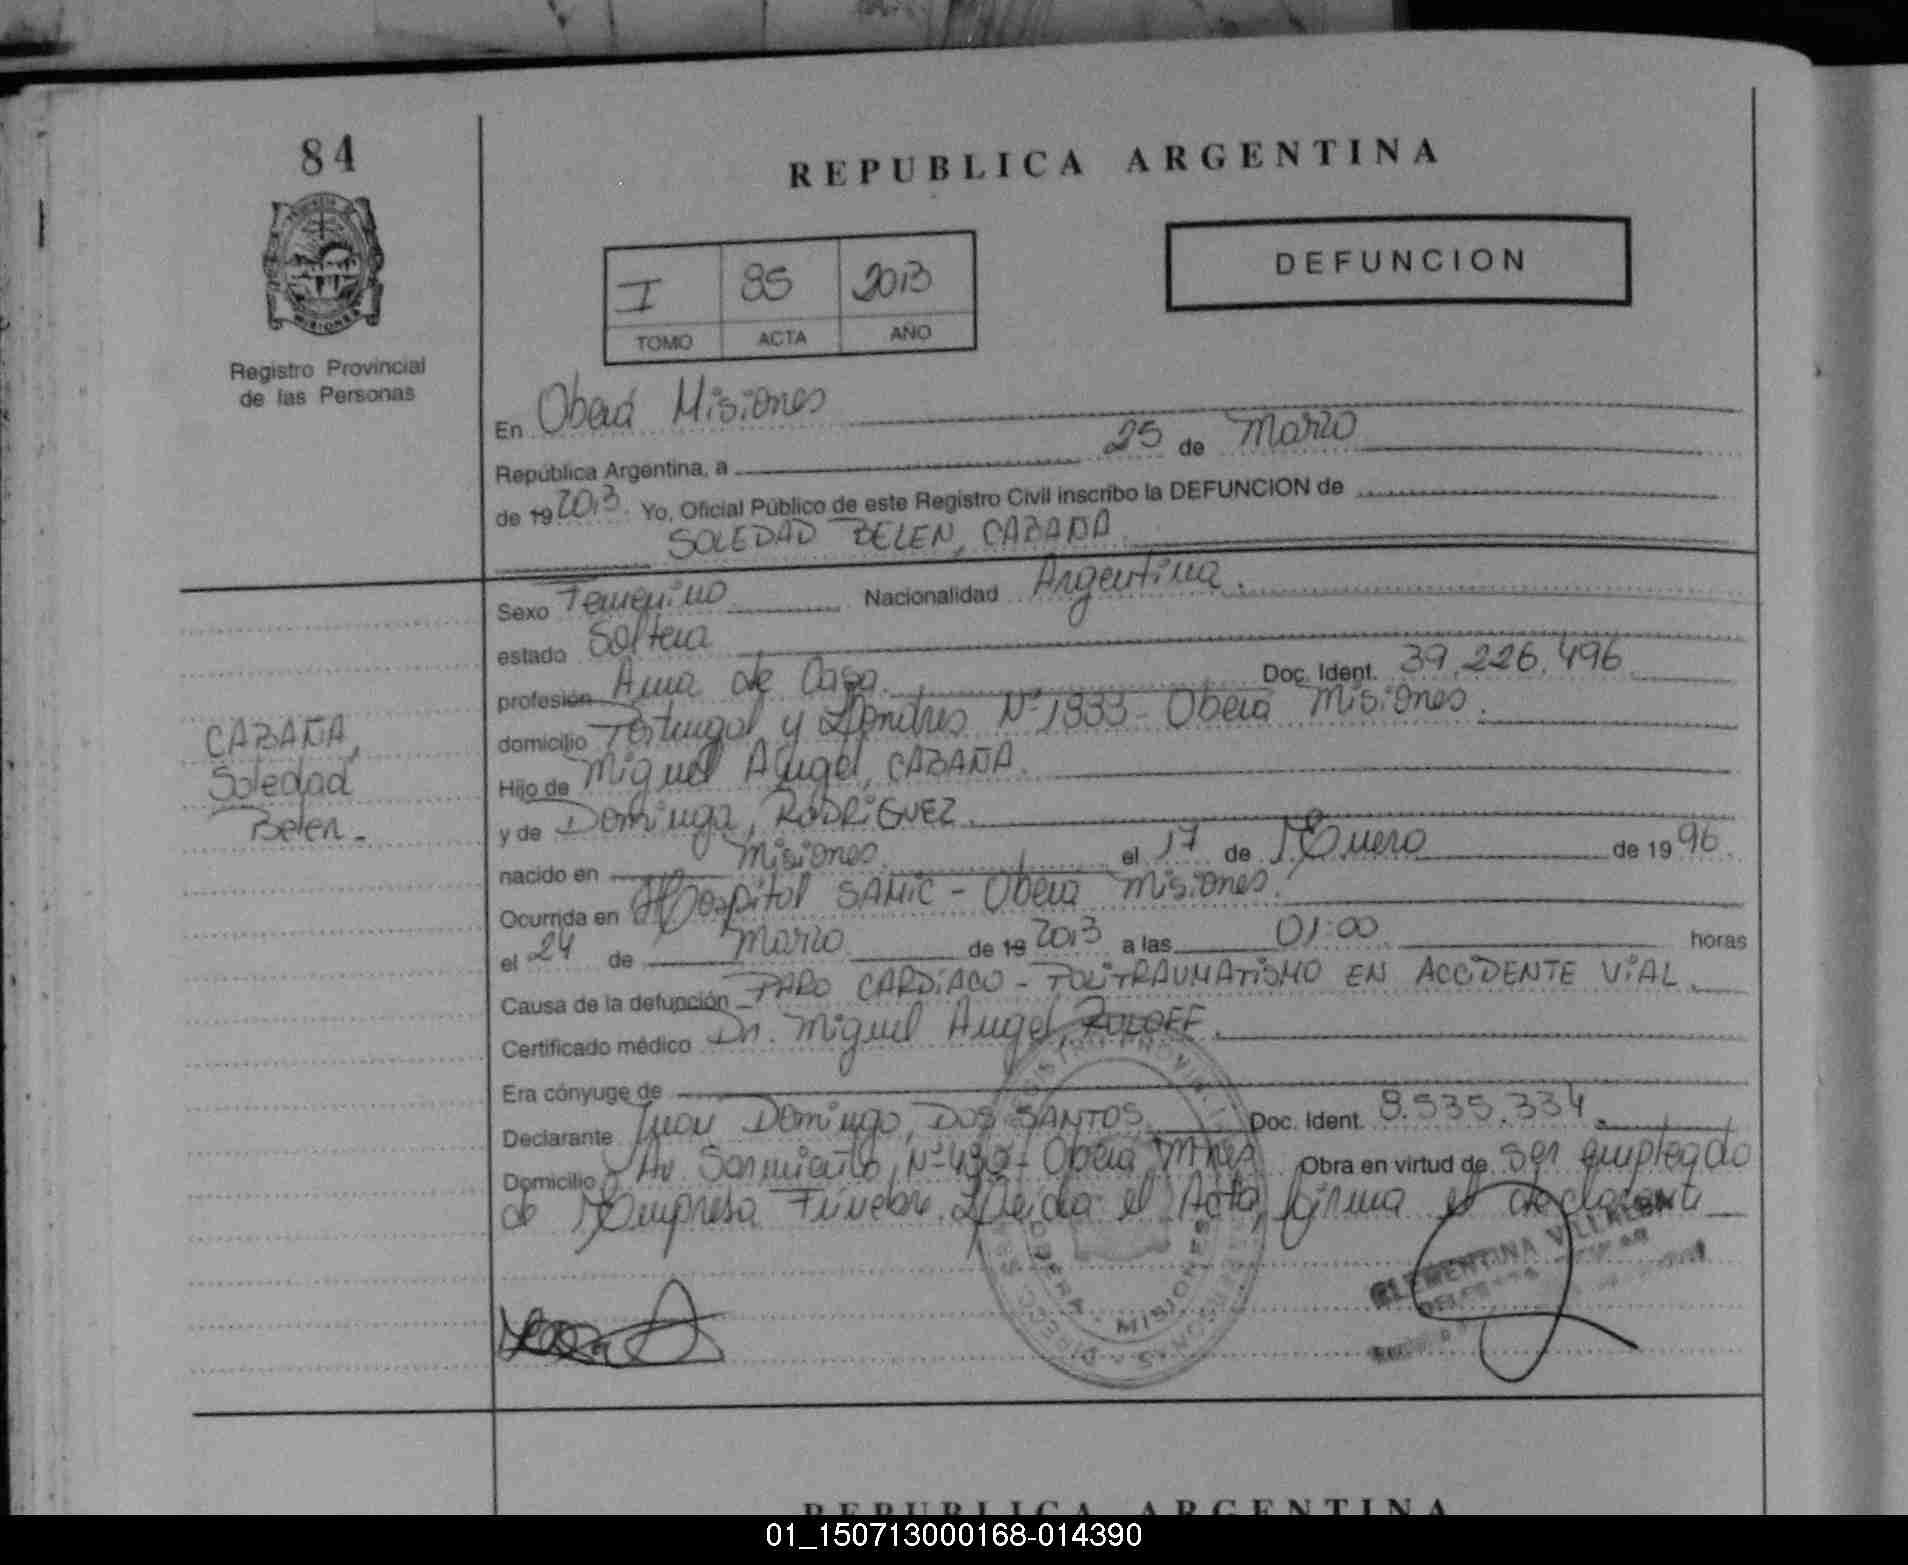 84
REPUBLICA ARGENTINA
DEFUNCION
I 85 2013
TOMO ACTA AÑO
MISIONES
Registro Provincial
de las Personas
En Oberá Misiones
República Argentina, a 25 de Marzo
de 19 2013. Yo, Oficial Público de este Registro Civil inscribo la DEFUNCION de
SOLEDAD BELEN, CABAÑA
Sexo Femenino Nacionalidad Argentina.
estado Soltera
profesión Ama de Casa. Doc. Ident. 39.226.496
domicilio Portugal y Londres Nº 1333 - Oberá Misiones.
CABAÑA,
Soledad
Belen.
Hijo de Miguel Angel, CABAÑA.
y de Dominga, RODRIGUEZ.
nacido en Misiones. el 17 de Enero de 1996.
Ocurrida en Hospital SAMIC - Oberá Misiones.
el 24 de Marzo de 19 2013 a las 01:00 horas
Causa de la defunción PARO CARDIACO - POLITRAUMATISMO EN ACCIDENTE VIAL.
Certificado médico Dr. Miguel Angel,
Era cónyuge de
Declarante Juan Domingo, DOS SANTOS Doc. Ident. 8.535.334.
Domicilio Av. Sarmiento, Nº 490 - Oberá Mnes Obra en virtud de ser empleado
de Empresa Fúnebre. Leída el Acta, firma el declarante
OBERA - MISIONES
CLEMENTINA VILLALBA
REPUBLICA ARGENTINA
01_150713000168-014390